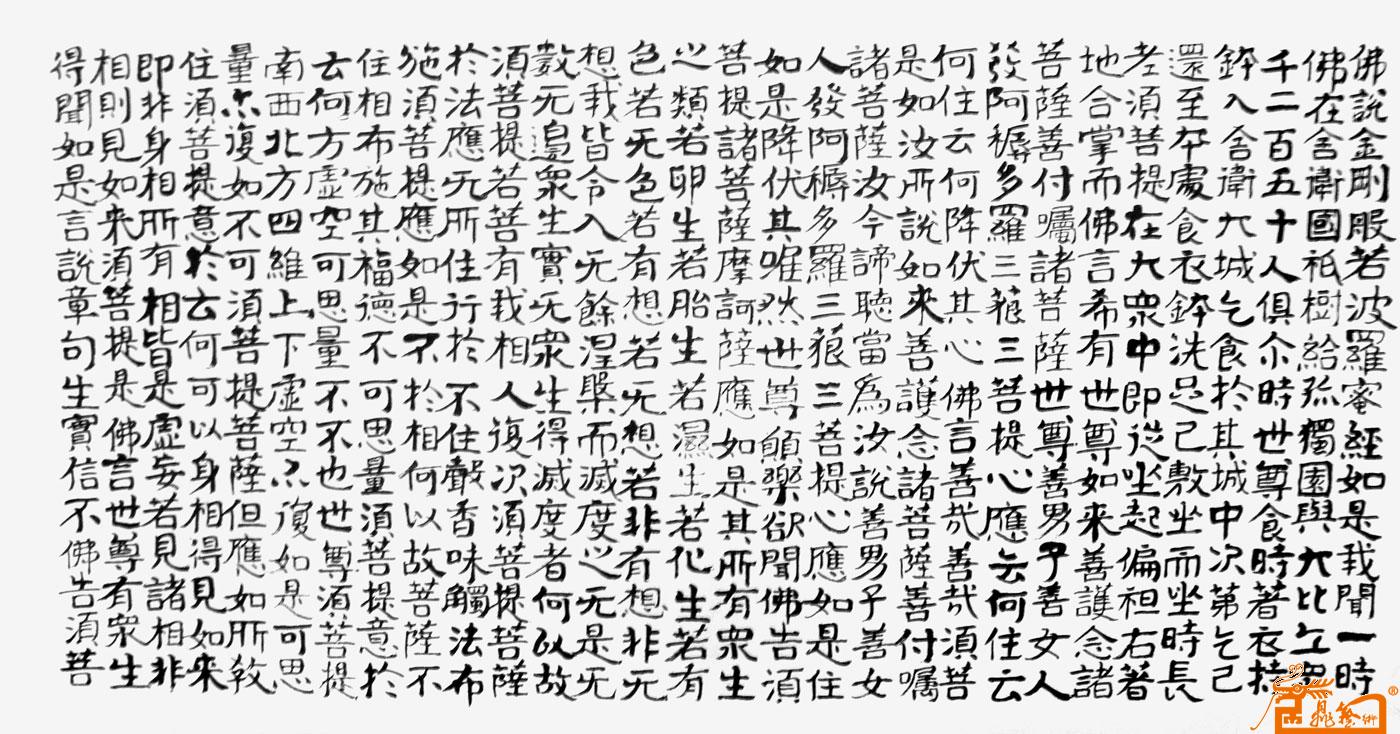 佛說金剛般若波羅蜜經如是我聞一時
佛在舍衛國祇樹給孤獨園與大比丘眾
千二百五十人俱尒時世尊食時著衣持
鉢入舍衛大城乞食於其城中次第乞已
還至本處食衣鉢洗足已敷坐而坐時長
老須菩提在大眾中即從坐起偏袒右著
地合掌而佛言希有世尊如来善護念諸
菩薩善付囑諸菩薩世尊善男子善女人
發阿耨多羅三藐三菩提心應云何住云
何住云何降伏其心佛言善哉善哉須菩
是如汝所說如來善護念諸菩薩善付囑
諸菩薩汝今諦聽當為汝說善男子善女
人發阿耨多羅三藐三菩提心應如是住
如是降伏其唯然世尊願樂欲聞佛告須
菩提諸菩薩摩訶薩應如是其所有眾生
心類若卵生若胎生若濕生若化生若有
色若无色若有想若无想若非有想非无
想我皆令入无餘涅槃而滅度之无是无
數无邊眾生實无眾生得滅度者何以故
須菩提若菩有我相人復次須菩提菩薩
於法應无所住行於不住聲香味觸法布
施須菩提應如是不於相何以故菩薩不
住相布施其福德不可思量須菩提意於
云何方虛空可思量不不也世尊須菩提
南西北方四維上下虛空亦復如是可思
量亦復如不可須菩提菩薩但應如所教
住須菩提意於云何可以身相得見如来
即非身相所有相皆是虛妄若見諸相非
相則見如来須菩提是佛言世尊有眾生
得聞如是言說章句生實信不佛告須菩